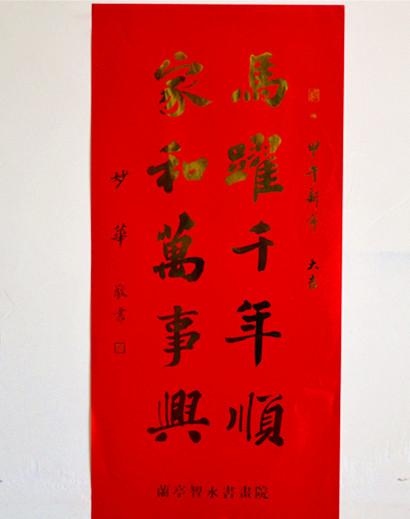 甲午新年 大吉
馬躍千年順
家和萬事興
妙華敬書
蘭亭智永書畫院